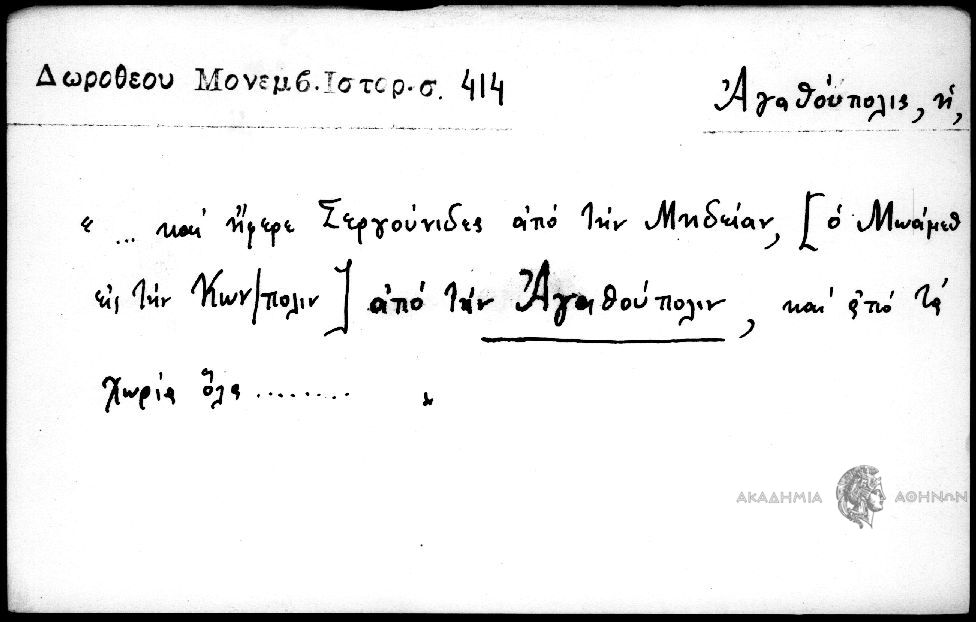 Δωροθεου Μονεμβ. Ιστορ. σ. 414
Ἀγαθούπολις, ἡ,
" ... καί ἤφερε Σεργούνιδες ἀπό τήν Μηδείαν, [ὁ Μωάμεθ
εἰς τήν Κων/πολιν] ἀπό τήν Ἀγαθούπολιν, καί ἀπό τά
χωρία ὅλα ........ "
ΑΚΑΔΗΜΙΑ ΑΘΗΝΩΝ